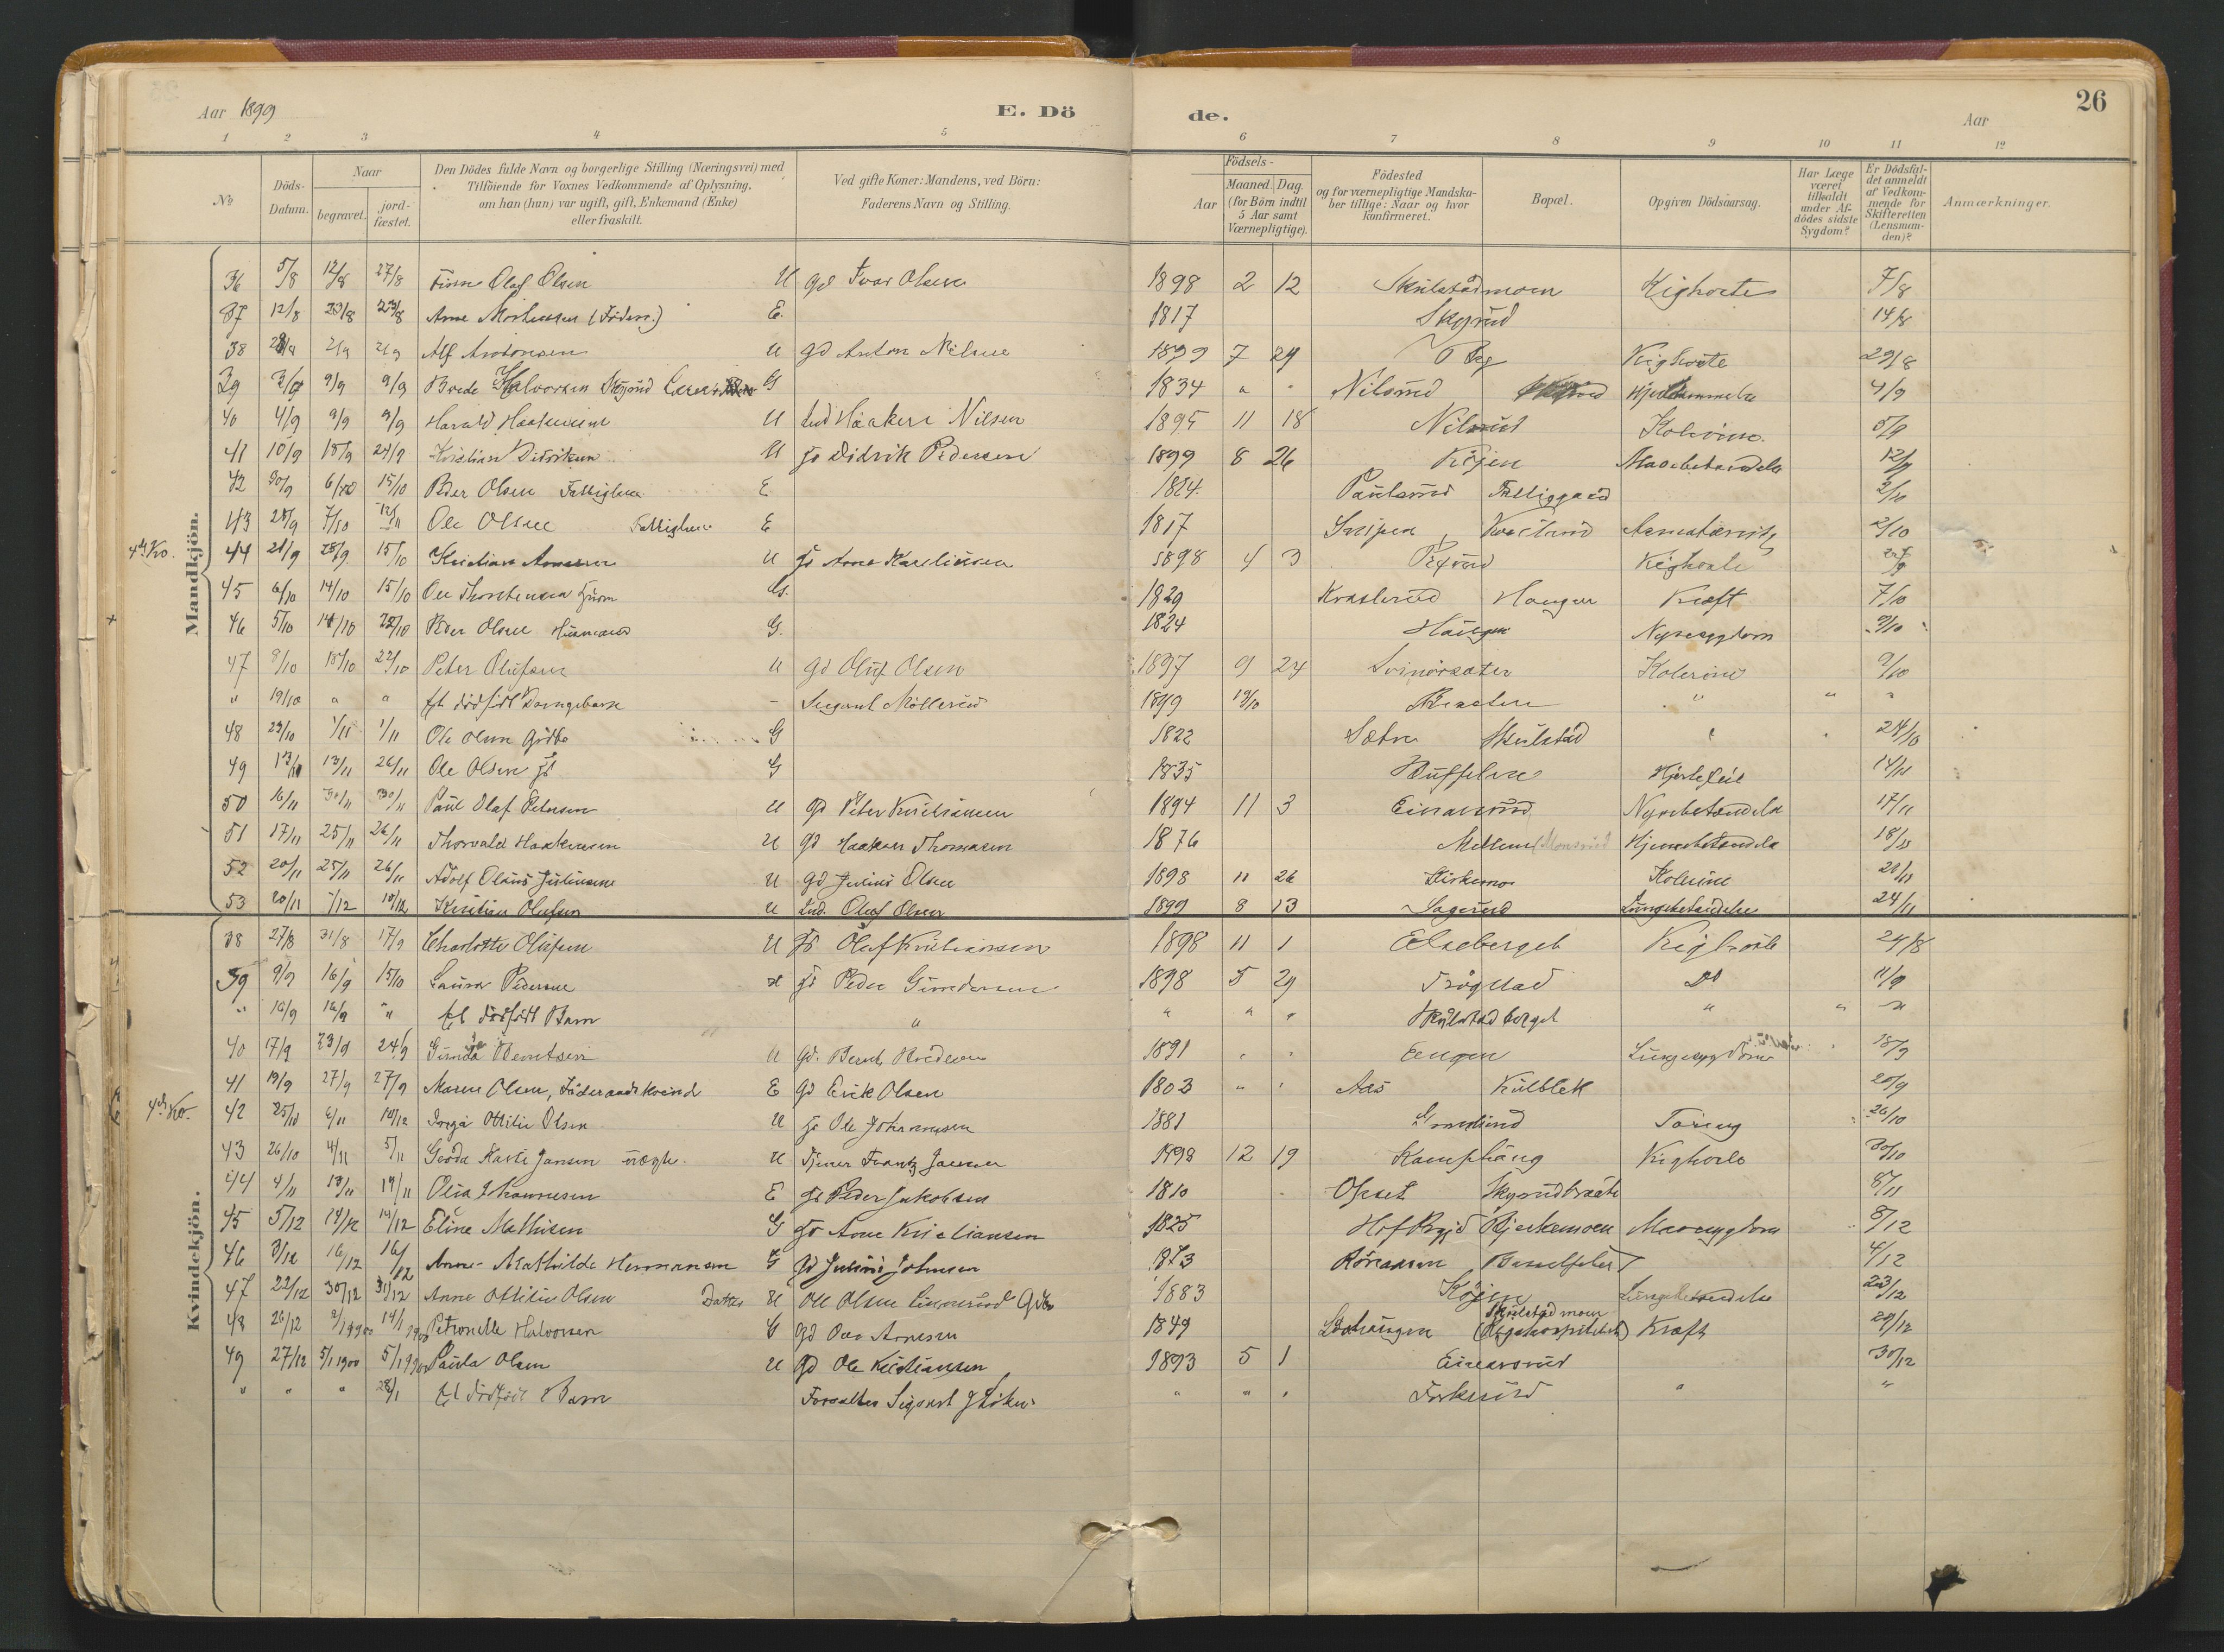 Aar 1899
E. Dö de.
Aar
26
1 2 3 4 5 6 7 8 9 10 11 12
No
Döds-Datum.
Naar
begravet.
jord-fæstet.
Den Dödes fulde Navn og borgerlige Stilling (Næringsvei) med
Tilföiende for Voxnes Vedkommende af Oplysning,
om han (hun) var ugift, gift, Enkemand (Enke)
eller fraskilt.
Ved gifte Koner: Mandens, ved Börn:
Faderens Navn og Stilling.
Födsels-
Aar
Maaned. Dag.
(for Börn indtil
5 Aar samt
Værnepligtige).
Födested
og for værnepligtige Mandska-
ber tillige: Naar og hvor
konfirmeret.
Bopæl.
Opgiven Dödsaarsag.
Har Læge
været
tilkaldt
under Af-
dödes sidste
Sygdom?
Er Dödsfal-
det anmeldt
af Vedkom-
mende for
Skifteretten
(Lensman-
den)?
Anmærkninger.
Mandkjön.
36 5/8 12/8 27/8 Finn Olaf Olsen U gd Ivar Olsen 1898 2 12 Skulstadmoen Kighoste 7/8
37 12/8 23/8 Arne Mortensen (Föder.) E. 1817 Skyrud 14/8
38 2/9 2/9 Alf Antonsen U gd Anton Nilsen 1899 7 29 Kighoste 29/8
39 3/9 9/9 9/9 Brede Halvorsen Skyrud G 1834 Nilsrud 4/9
40 4/9 9/9 9/9 Harald Haakensen U Ind Haaken Nilsen 1895 11 18 Nilsrud Kolerine 5/9
41 10/9 15/9 24/9 Kristian Didriksen U fs Didrik Pedersen 1899 8 26 Köjen Mavebetændelse 12/9
42 30/9 6/10 15/10 Peder Olsen Fattiglem E 1824 Paulsrud Fattiggaard 2/10
43 28/9 7/10 12/11 Ole Olsen Fattiglem E 1817 Snipen 2/10
4de Ko. 44 21/9 28/9 15/10 Kristian Arnesen U fs Arne Karelinsen 1898 4 3 Kighoste
45 6/10 14/10 15/10 Ole Thorstensen Husm G. 1829 Kraslerud Haugen Kræft 7/10
46 5/10 14/10 22/10 Peder Olsen Husmand G. 1824 Haugen Nyresygdom 9/10
47 8/10 18/10 22/10 Peter Olufsen U gd Oluf Olsen 1897 9 24 Svinörsæter Kolerine 9/10
" 19/10 " " Et dödfödt Drengebarn - Sergeant Möllerud 1899 19/10 Braaten " " "
48 23/10 1/11 1/11 Ole Olsen Gdbr G 1822 Sætre Skulstad 24/10
49 13/11 26/11 Ole Olsen fs G 1835 Hjertefeil 14/11
50 16/11 30/11 30/11 Paul Olaf Petersen U gd Peter Kristiansen 1894 11 3 Einarsrud Nyrebetændelse 17/11
51 17/11 25/11 26/11 Thorvald Haakensen U gd Haaken Thomasen 1876 Mellem Hjernebetændelse 18/11
52 20/11 25/11 26/11 Adolf Olaus Juliussen U gd Julius Olsen 1898 11 26 Kirkemo Kolerine 20/11
53 20/11 1/12 10/12 Kristian Olafsen U Ind. Olaf Olsen 1899 8 13 Sagerud Lungebetændelse 24/11
Kvindekjön.
38 27/8 31/8 17/9 Charlotte Olafsen U fs Olaf Kristiansen 1898 11 1 Elseberget Kighoste 29/8
39 9/9 16/9 15/10 Laura Pedersen U fs Peder Gundersen 1898 5 29 Trögstad Do 11/9
" 16/9 16/9 " Et dödfödt Barn " " " " Skulstadberget " " "
40 17/9 23/9 24/9 Gunda Berntsen U gd. Bernt Bredesen 1891 " " Engen Lungesygdom 18/9
41 19/9 27/9 27/9 Maren Olsen, Föderaadskvind E gd Erik Olsen 1803 " " Aas Kulblik 20/9
4de Ko. 42 25/10 6/11 10/12 Inga Ottilie Olsen U fs Ole Johannesen 1881 Grueslund Tæring 26/10
43 26/10 4/11 5/11 Gerda Marie Jansen uægte. U Tjener Frantz Jansen 1898 12 19 Kamphaug Kighoste 30/10
44 4/11 19/11 19/11 Olea Johannesen E fs Peder Jakobsen 1810 Opset Skyrudbraate 8/11
45 5/12 14/12 14/12 Eline Mathisen G fs Arne Kristiansen 1825 Hof Pgjd Bjerkemoen Mavesygdom 8/12
46 3/12 16/12 16/12 Anne Mathilde Hermansen G gd Julius Johnsen 1873 4/12
47 22/12 30/12 31/12 Anne Ottilie Olsen Datter U Ole Olsen Einarsrud Gdbr 1883 Köjen Lungebetændelse 23/12
48 26/12 9/1 1900 14/1 1900 Petronelle Halvorsen G gd Ole Arnesen 1849 Skulstadmoen (Rigshospitalet) Kræft 29/12
49 27/12 5/1 1900 5/1 1900 Paula Olsen U gd Ole Kristiansen 1893 5 1 Einarsrud 30/12
" " " 28/1 Et dödfödt Barn Forvalter Sigurd J Löken " " " Torkerud " "